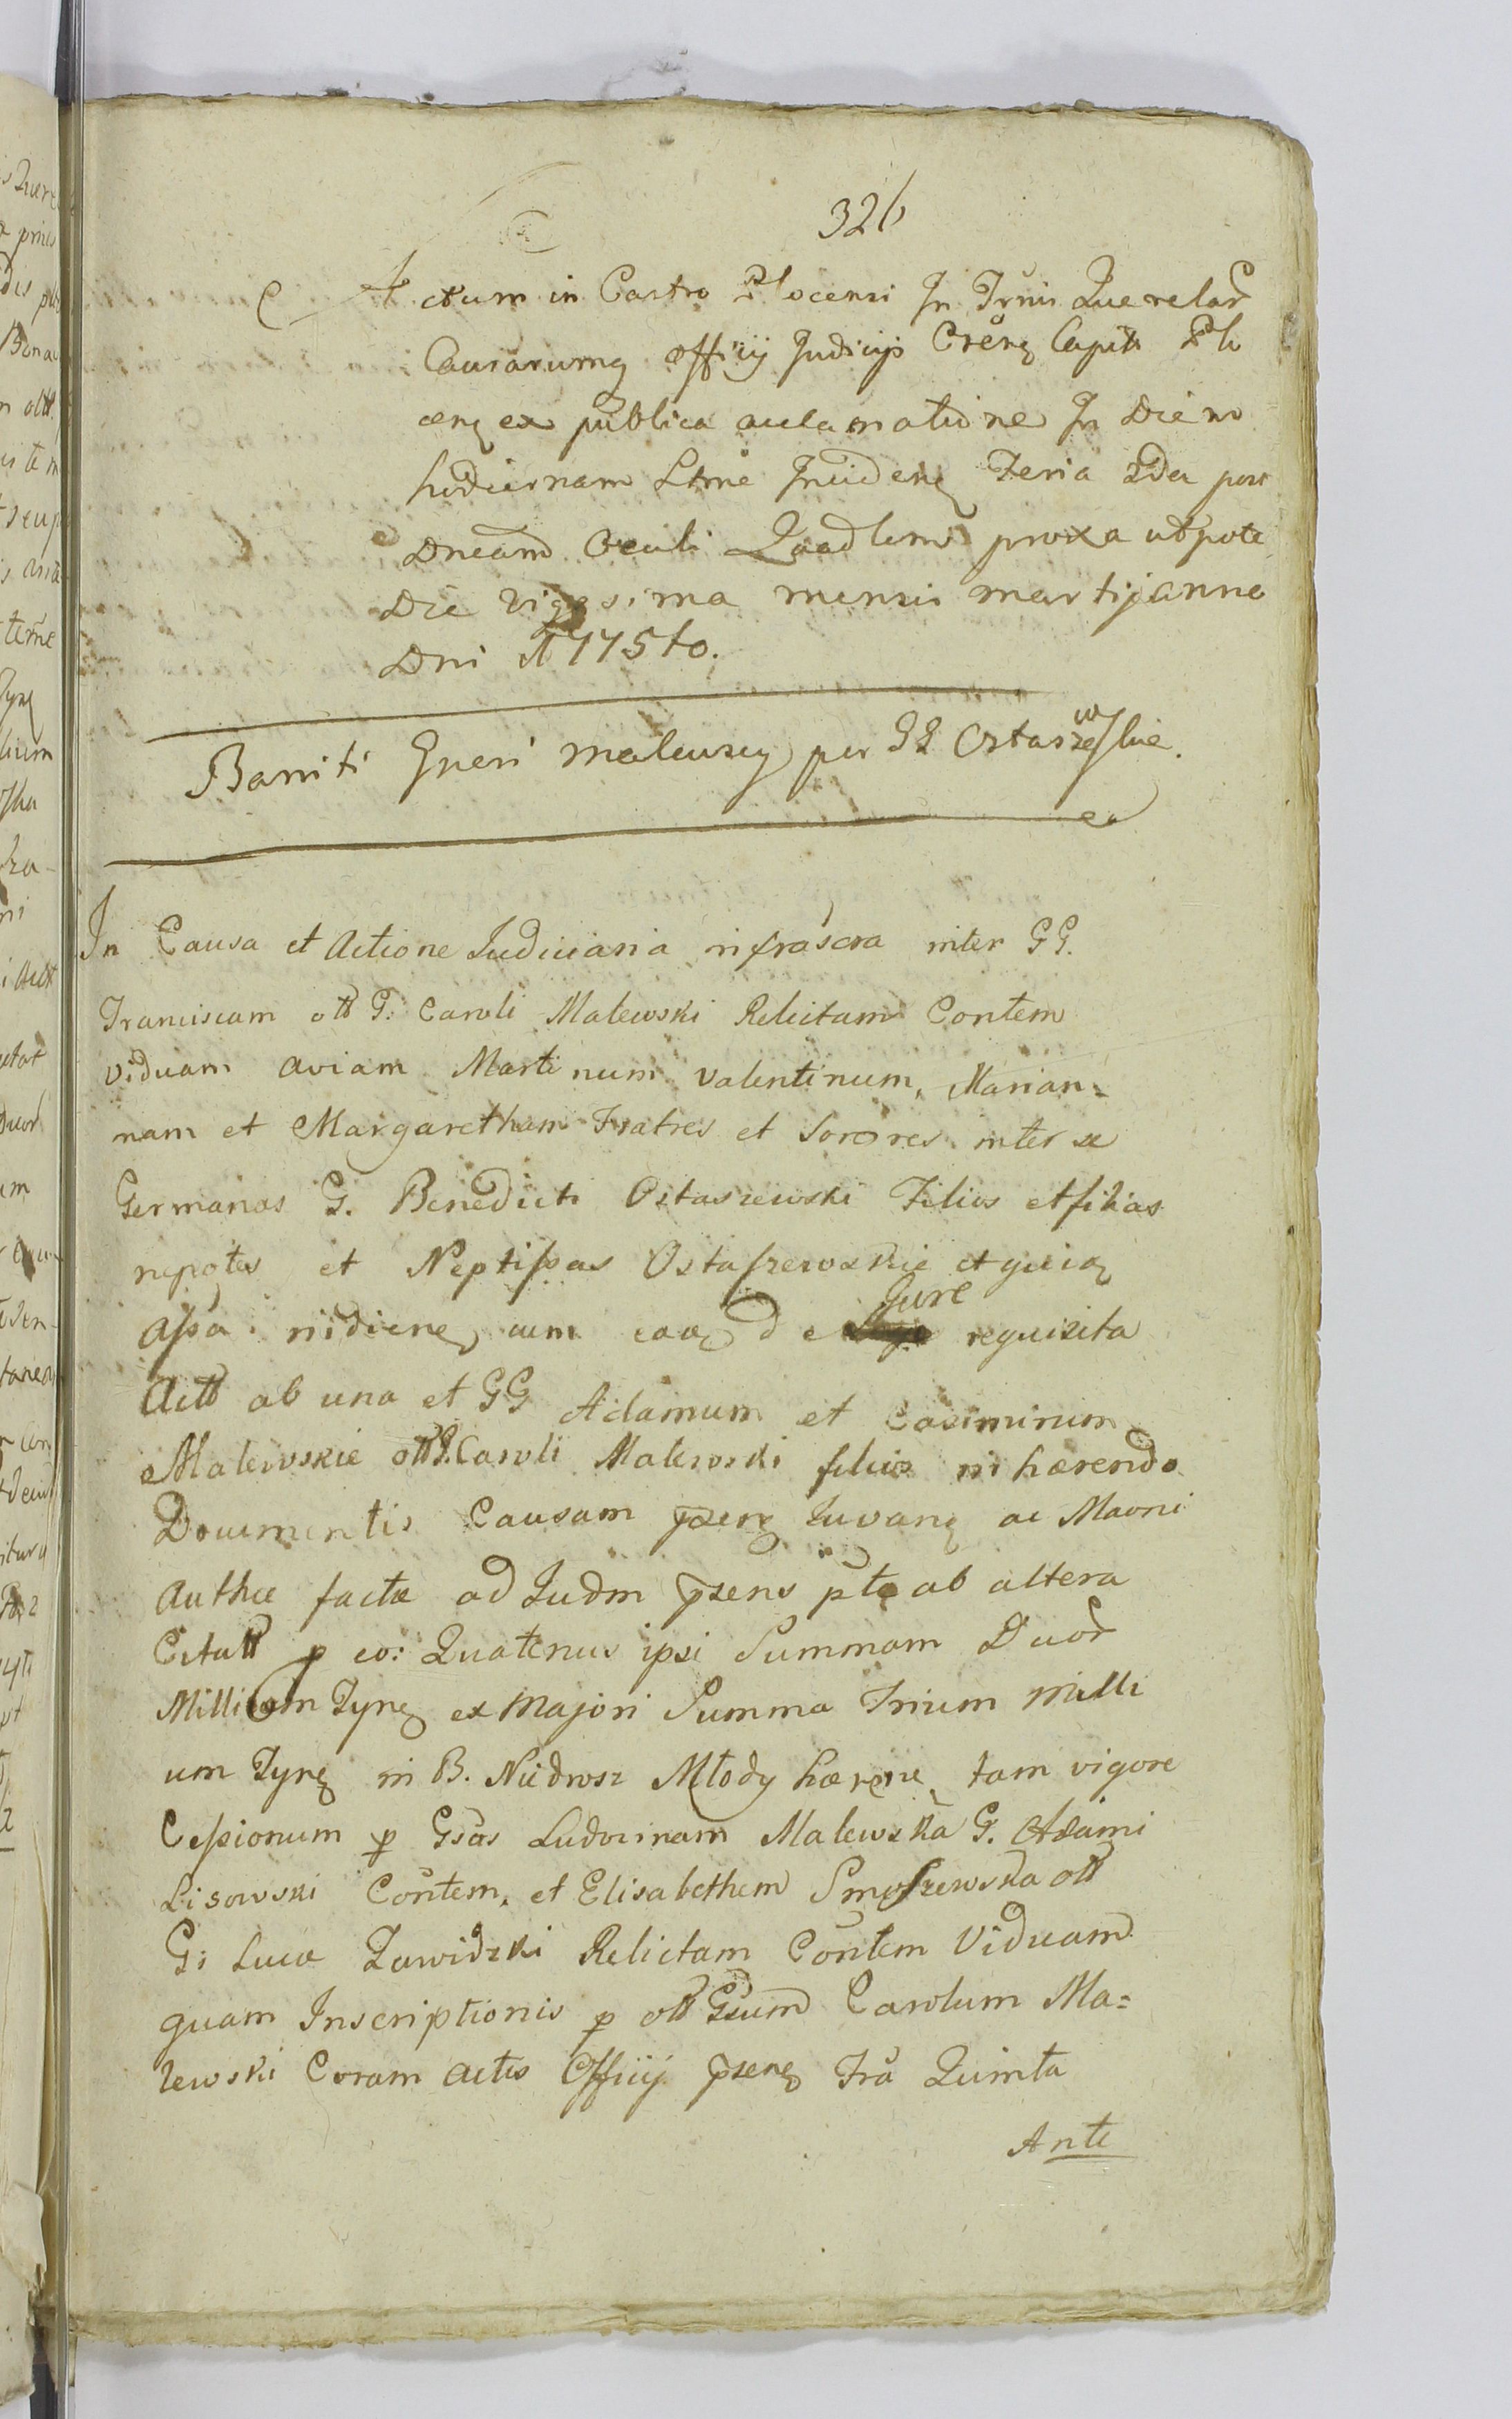 326
Actum in Castro Plocensi In Trnis Querelar
Causarumq officij Judicijs Crenq Capits Plo
cenq ex publica acclamatione In Diem
hodiernam Ltme Incidenq Feria 2da post
Dneam Oculi Quadlem proxa utpote
Die vigesima mensis martij anno
Dni 1775to.
Baniti Gneri Malewscy per GG Ostaszewskie.
In Causa et Actione Judiciaria infrascra inter GG.
Franciscam olt G. Caroli Malewski Relictam Contem
viduam aviam Martinum Valentinum, Marian=
nam et Margaretham Fratres et Sorores inter se
Germanas G. Benedicti Ostaszewski Filios et filias
nepotes et Neptissas Ostaszewskie
assa. indicenq cum eaq de Jure requisita
Actt ab una et GG Adamum et Casimirum
Malewskie olt G. Caroli Malewski filios inhærendo
Documentis Causam psenq Juvanq ac
Authæ factæ ad Judm psens pte ab altera
Citatt p eo: Quatenus ipsi Summam Duor
Millium Tynq ex Majori Summa Trium Milli
um Tynq in B. Niedrosz Młody hærene, tam vigore
Cessionum p Gsas Ludovinam Malewska G. Adami
Lisowski Contem, et Elisabetham Smoszewska olt
G: Lucæ Zawidzki Relictam Contem Viduam
quam Inscriptionis p olt Gsum Carolum Ma=
lewski Coram actis Officij psenq Fra Quinta
Ante